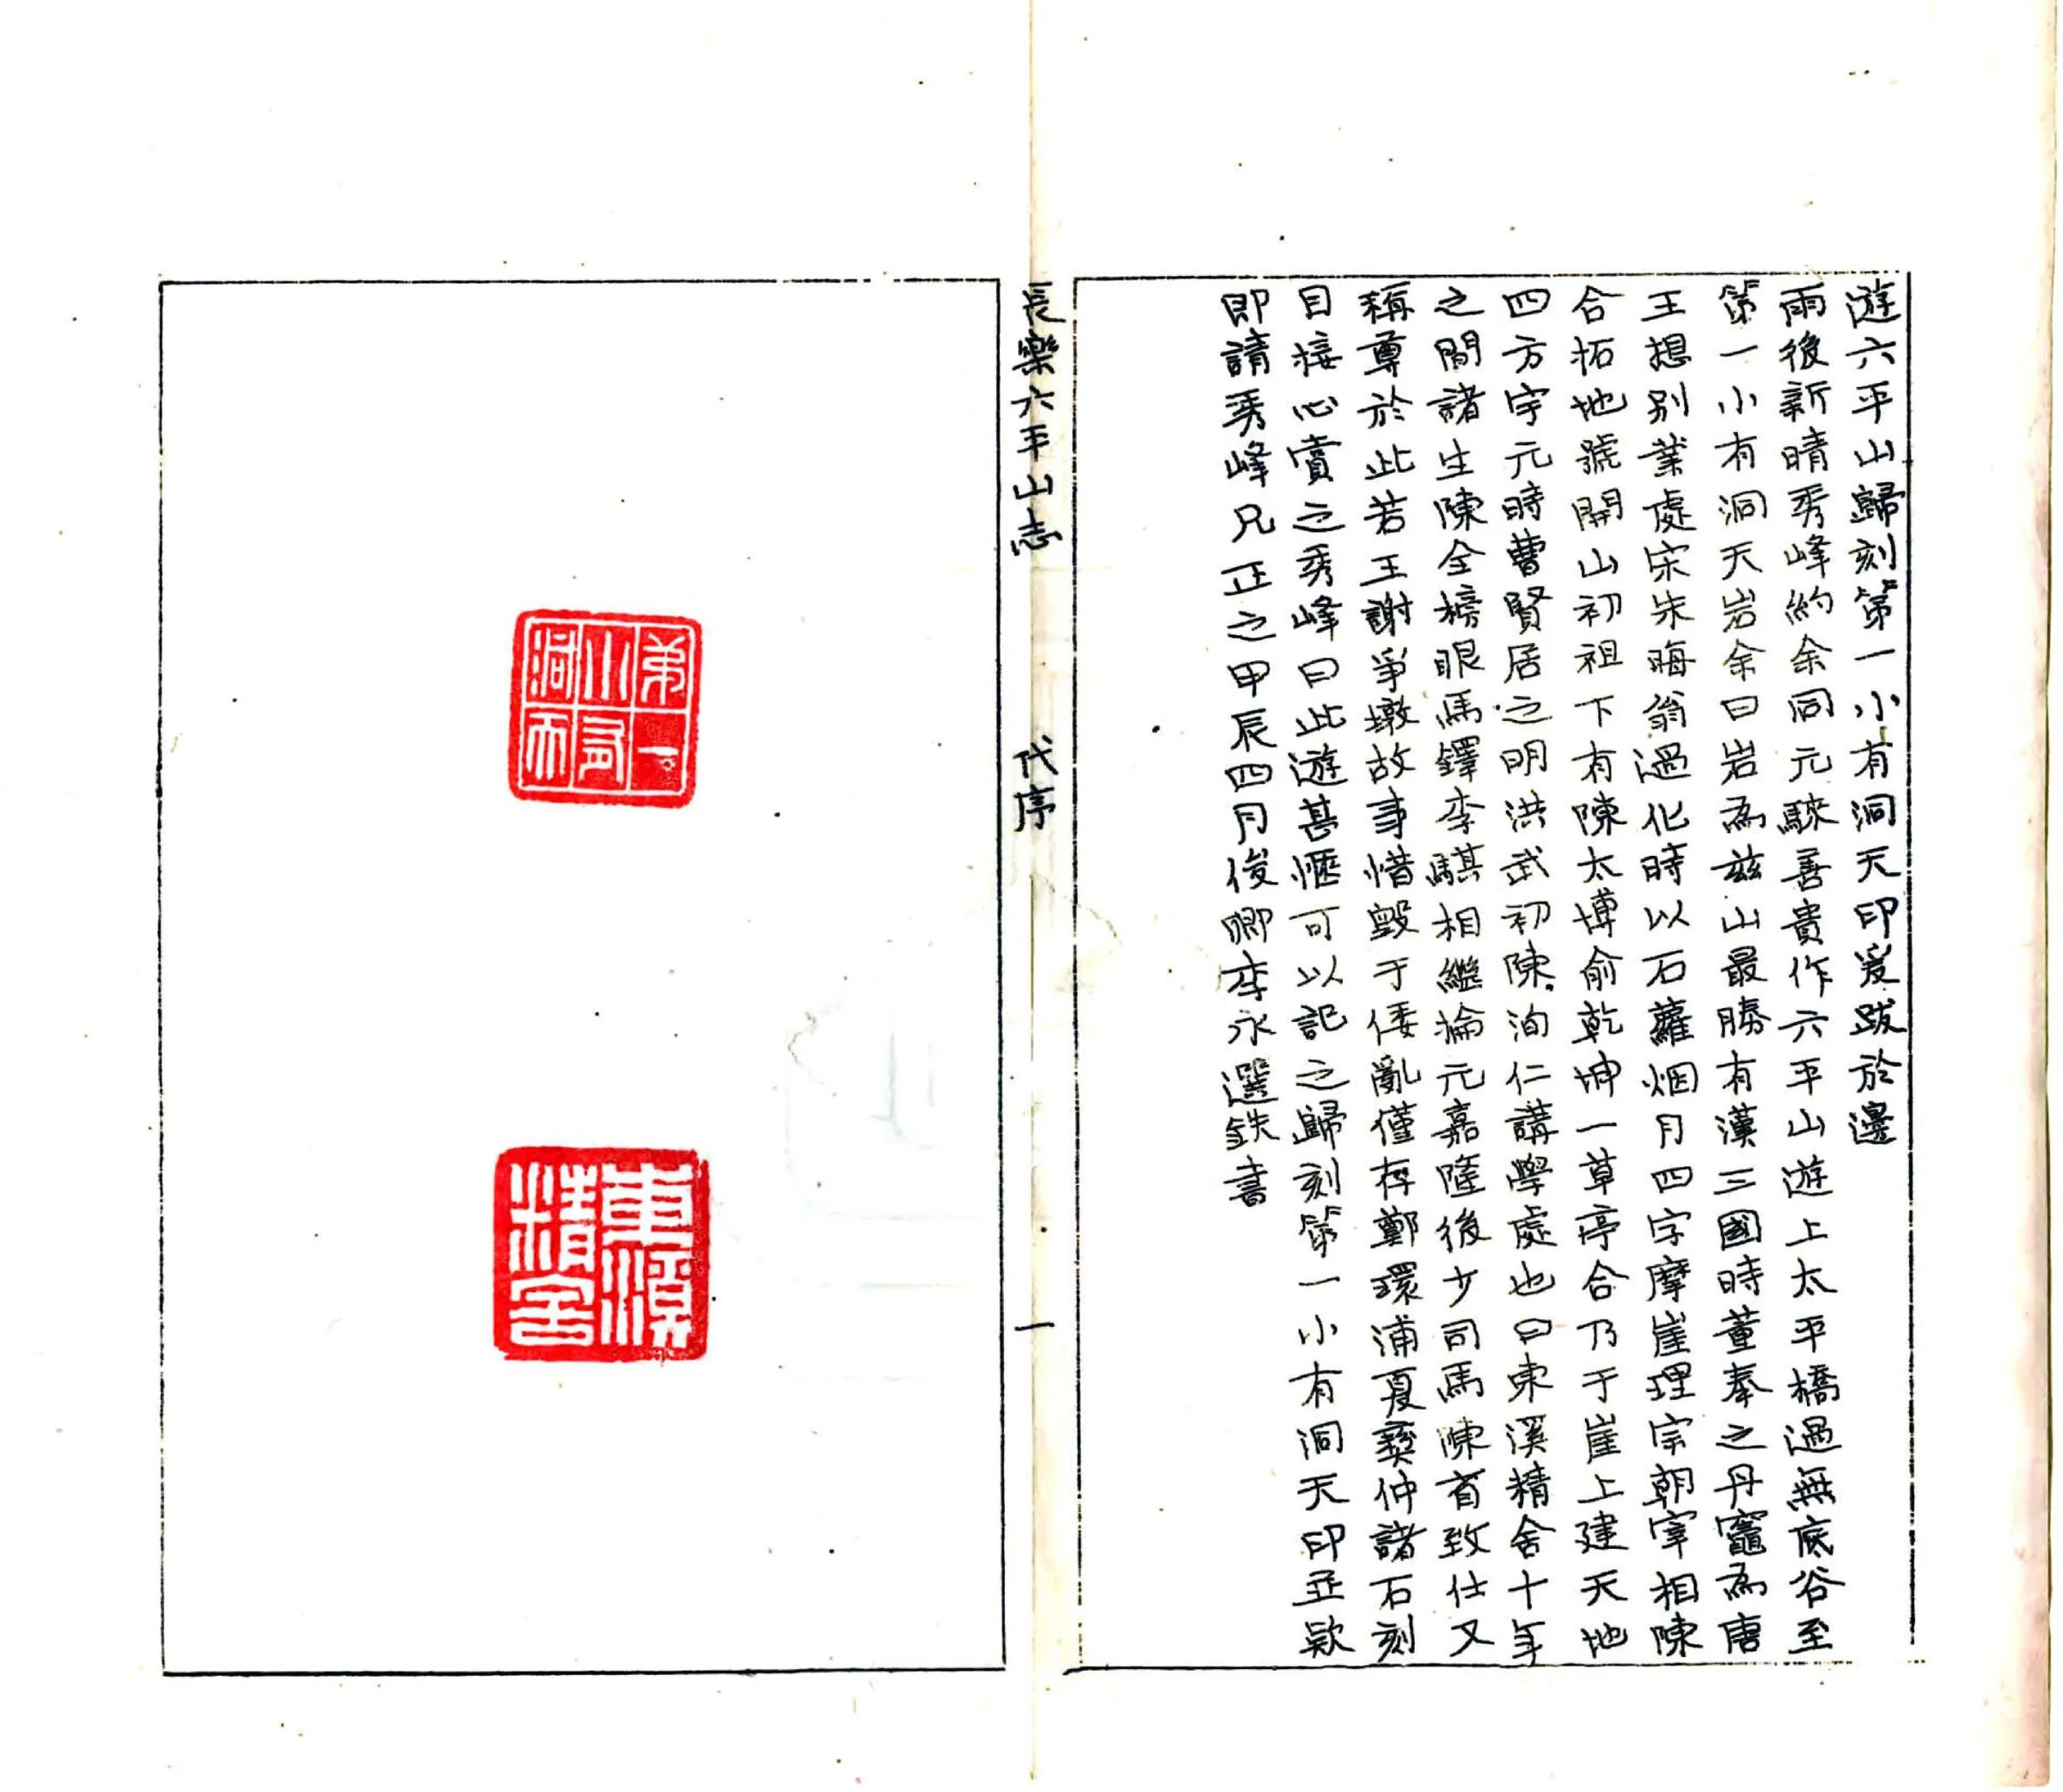 遊六平山歸刻第一小有洞天印爰跋於邊
雨後新晴秀峰約余同元騋善貴作六平山遊上太平橋過無底谷至
第一小有洞天岩余曰岩為茲山最勝有漢三國時董奉之丹竈為唐
王想別業處宋朱晦翁過化時以石蘿烟月四字摩崖理宗朝宰相陳
合拓地號開山初祖下有陳太博俞乾坤一草亭合乃于崖上建天地
四方宇元時曹賢居之明洪武初陳洵仁講學處也曰東溪精舍十年
之間諸生陳全榜眼馬鐸李騏相繼掄元嘉隆後少司馬陳省致仕又
稱尊於此若王謝爭墩故事惜毀于倭亂僅存鄭環浦夏彝仲諸石刻
目接心賞之秀峰曰此遊甚愜可以記之歸刻第一小有洞天印並欵
即請秀峰兄正之甲辰四月俊卿李永選鉄書
長樂六平山志
代序
一
第一小有洞天
東溪精舍